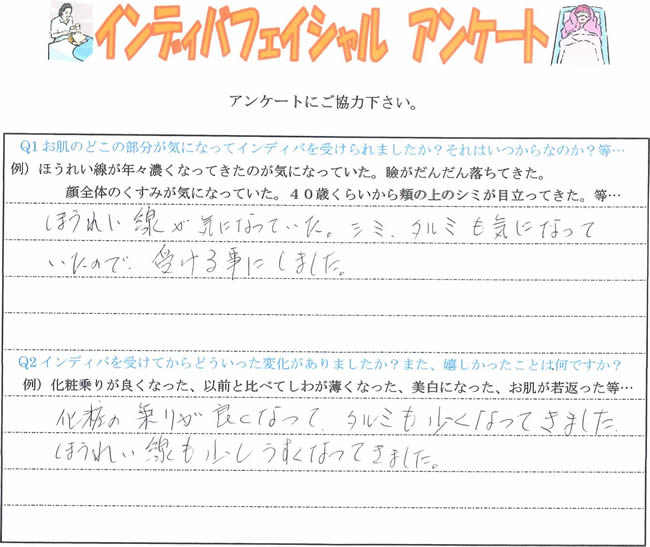 インディバフェイシャル アンケート
アンケートにご協力下さい。
Q1お肌のどこの部分が気になってインディバを受けられましたか？それはいつからなのか？等…
例）ほうれい線が年々濃くなってきたのが気になっていた。瞼がだんだん落ちてきた。
顔全体のくすみが気になっていた。４０歳くらいから頬の上のシミが目立ってきた。等…
ほうれい線が気になっていた。シミ、タルミも気になって
いたので、受ける事にしました。
Q2インディバを受けてからどういった変化がありましたか？また、嬉しかったことは何ですか？
例）化粧乗りが良くなった、以前と比べてしわが薄くなった、美白になった、お肌が若返った等…
化粧の乗りが良くなって、タルミも少くなってきました。
ほうれい線も少しうすくなってきました。